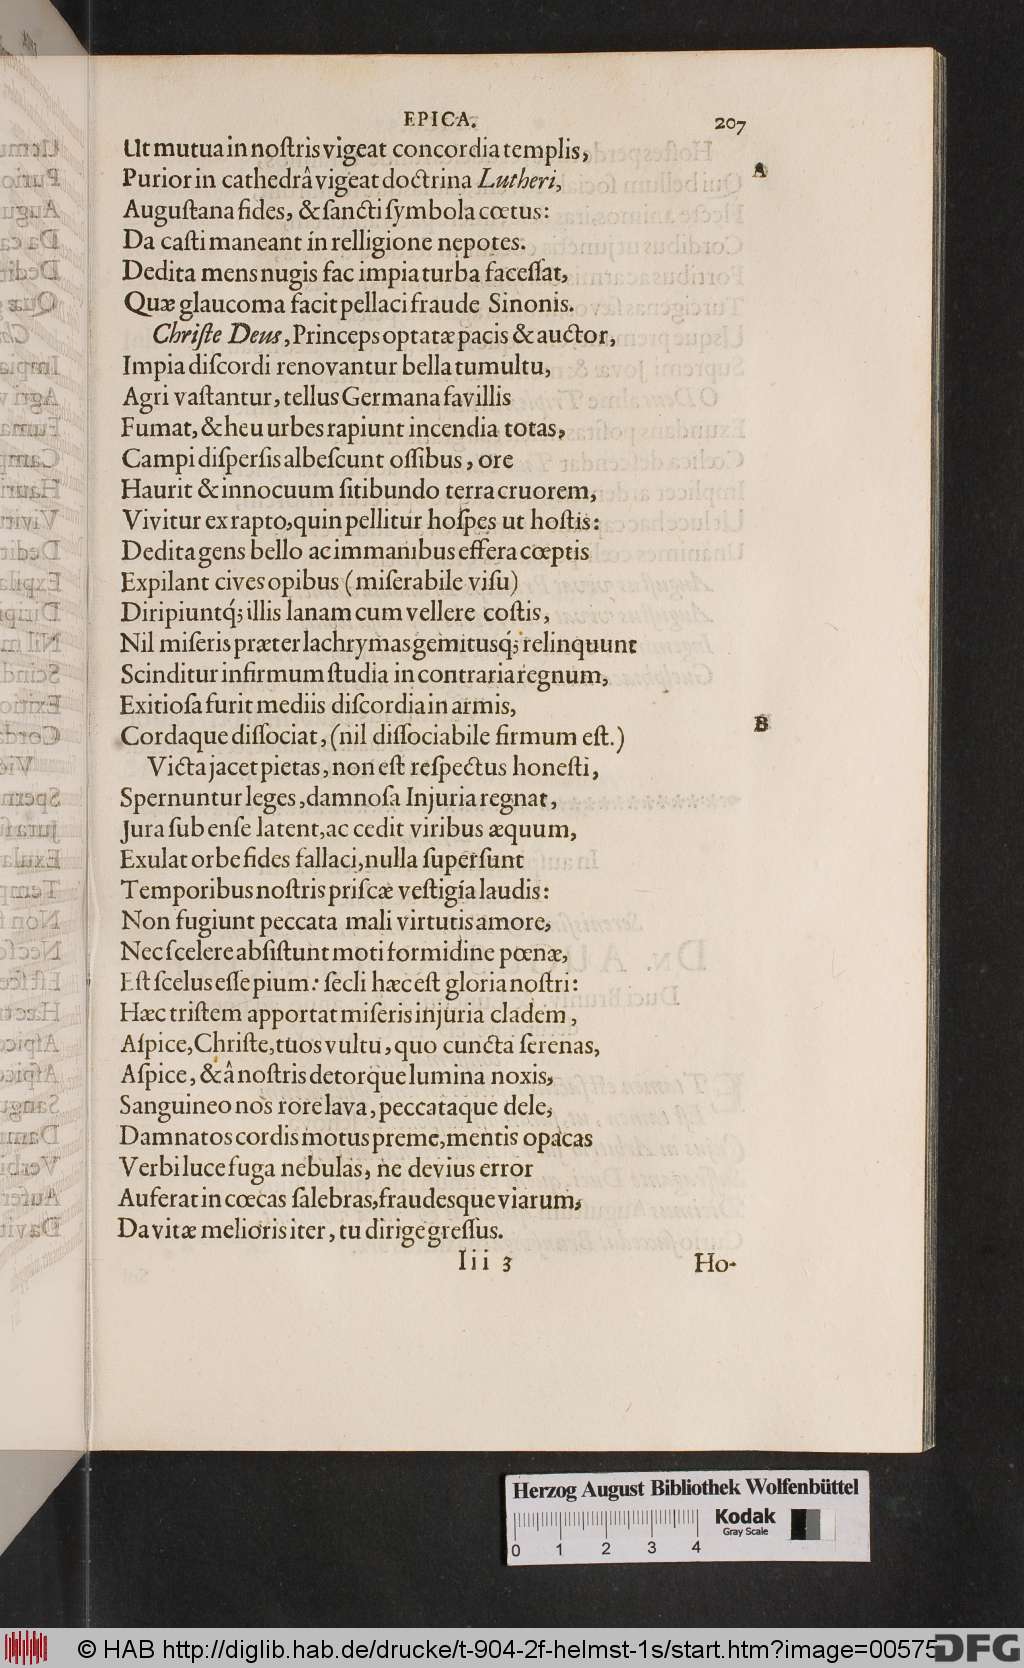 EPICA. 207
Ut mutua in noſtris vigeat concordia templis,
A
Purior in cathedrâ vigeat doctrina Lutheri,
Auguſtana fides, & ſancti ſymbola cœtus:
Da caſti maneant in relligione nepotes.
Dedita mens nugis fac impia turba faceſſat,
Quæ glaucoma facit pellaci fraude Sinonis.
Chriſte Deus, Princeps optatæ pacis & auctor,
Impia diſcordi renovantur bella tumultu,
Agri vaſtantur, tellus Germana favillis
Fumat, & heu urbes rapiunt incendia totas,
Campi diſperſis albeſcunt oſſibus, ore
Haurit & innocuum ſitibundo terra cruorem,
Vivitur ex rapto, quin pellitur hoſpes ut hoſtis:
Dedita gens bello ac immanibus effera cœptis
Expilant cives opibus (miſerabile viſu)
Diripiuntq́; illis lanam cum vellere coſtis,
Nil miſeris præter lachrymas gemitusq́; relinquunt
Scinditur infirmum ſtudia in contraria regnum,
Exitioſa furit mediis diſcordia in armis,
B
Cordaque diſſociat, (nil diſſociabile firmum eſt.)
Victa jacet pietas, non eſt reſpectus honeſti,
Spernuntur leges, damnoſa Injuria regnat,
Jura ſub enſe latent, ac cedit viribus æquum,
Exulat orbe fides fallaci, nulla ſuperſunt
Temporibus noſtris priſcæ veſtigia laudis:
Non fugiunt peccata mali virtutis amore,
Nec ſcelere abſiſtunt moti formidine pœnæ,
Eſt ſcelus eſſe pium: ſecli hæc eſt gloria noſtri:
Hæc triſtem apportat miſeris injuria cladem,
Aſpice, Chriſte, tuos vultu, quo cuncta ſerenas,
Aſpice, & â noſtris detorque lumina noxis,
Sanguineo nos rore lava, peccataque dele,
Damnatos cordis motus preme, mentis opacas
Verbi luce fuga nebulas, ne devius error
Auferat in cœcas ſalebras, fraudesque viarum,
Da vitæ melioris iter, tu dirige greſſus.
Iii 3 Ho-
Herzog August Bibliothek Wolfenbüttel
Kodak
Gray Scale
0 1 2 3 4
© HAB http://diglib.hab.de/drucke/t-904-2f-helmst-1s/start.htm?image=00575
DFG